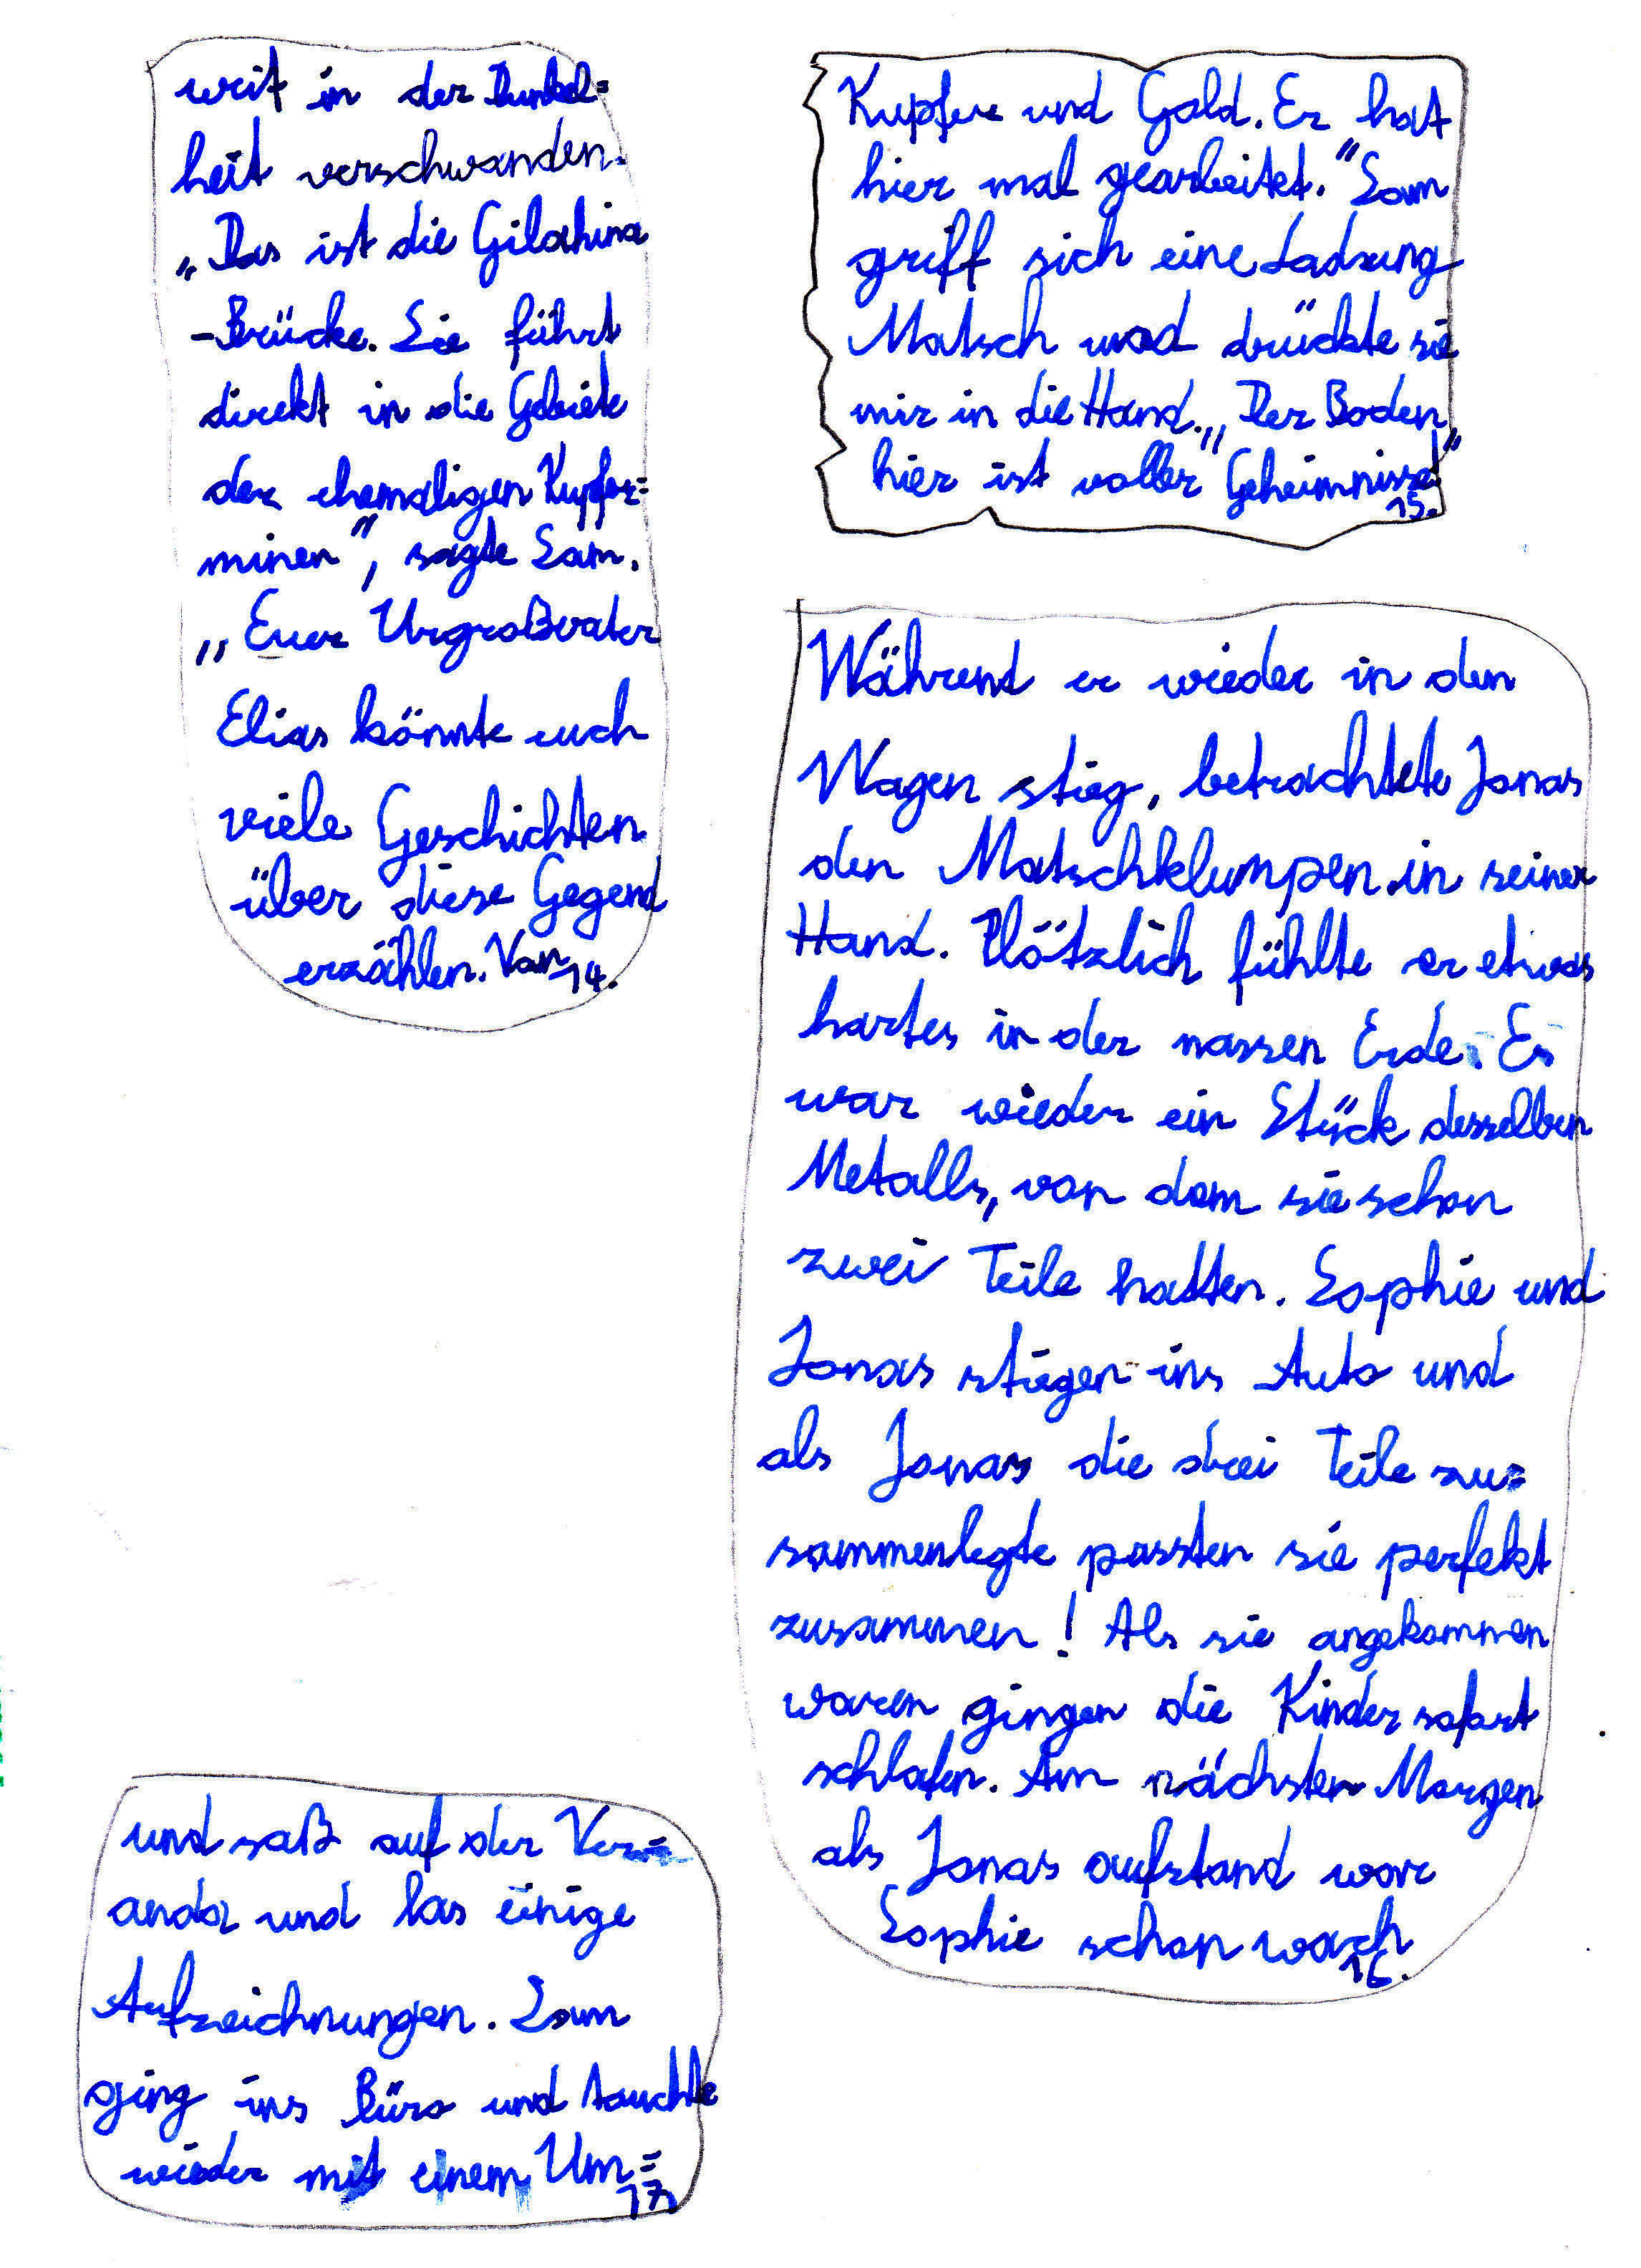 weit in der Dunkel=
heit verschwanden.
„Das ist die Gilahina
-Brücke. Sie führt
direkt in die Gebiete
der ehemaligen Kupfer=
minen", sagte Sam.
„Euer Urgroßvater
Elias könnte euch
viele Geschichten
über diese Gegend
erzählen. Von
14.
Kupfer und Gold. Er hat
hier mal gearbeitet." Sam
griff sich eine Ladung
Matsch und drückte sie
mir in die Hand. „Der Boden
hier ist voller Geheimnisse!"
15.
Während er wieder in den
Wagen stieg, betrachtete Jonas
den Matschklumpen in seiner
Hand. Plötzlich fühlte er etwas
hartes in der nassen Erde. Es
war wieder ein Stück desselben
Metalls, von dem sie schon
zwei Teile hatten. Sophie und
Jonas stiegen ins Auto und
als Jonas die drei Teile zu=
sammenlegte passten sie perfekt
zusammen! Als sie angekommen
waren gingen die Kinder sofort
schlafen. Am nächsten Morgen
als Jonas aufstand war
Sophie schon wach
16.
und saß auf der Ver=
anda und las einige
Aufzeichnungen. Sam
ging ins Büro und tauchte
wieder mit einem Um=
17